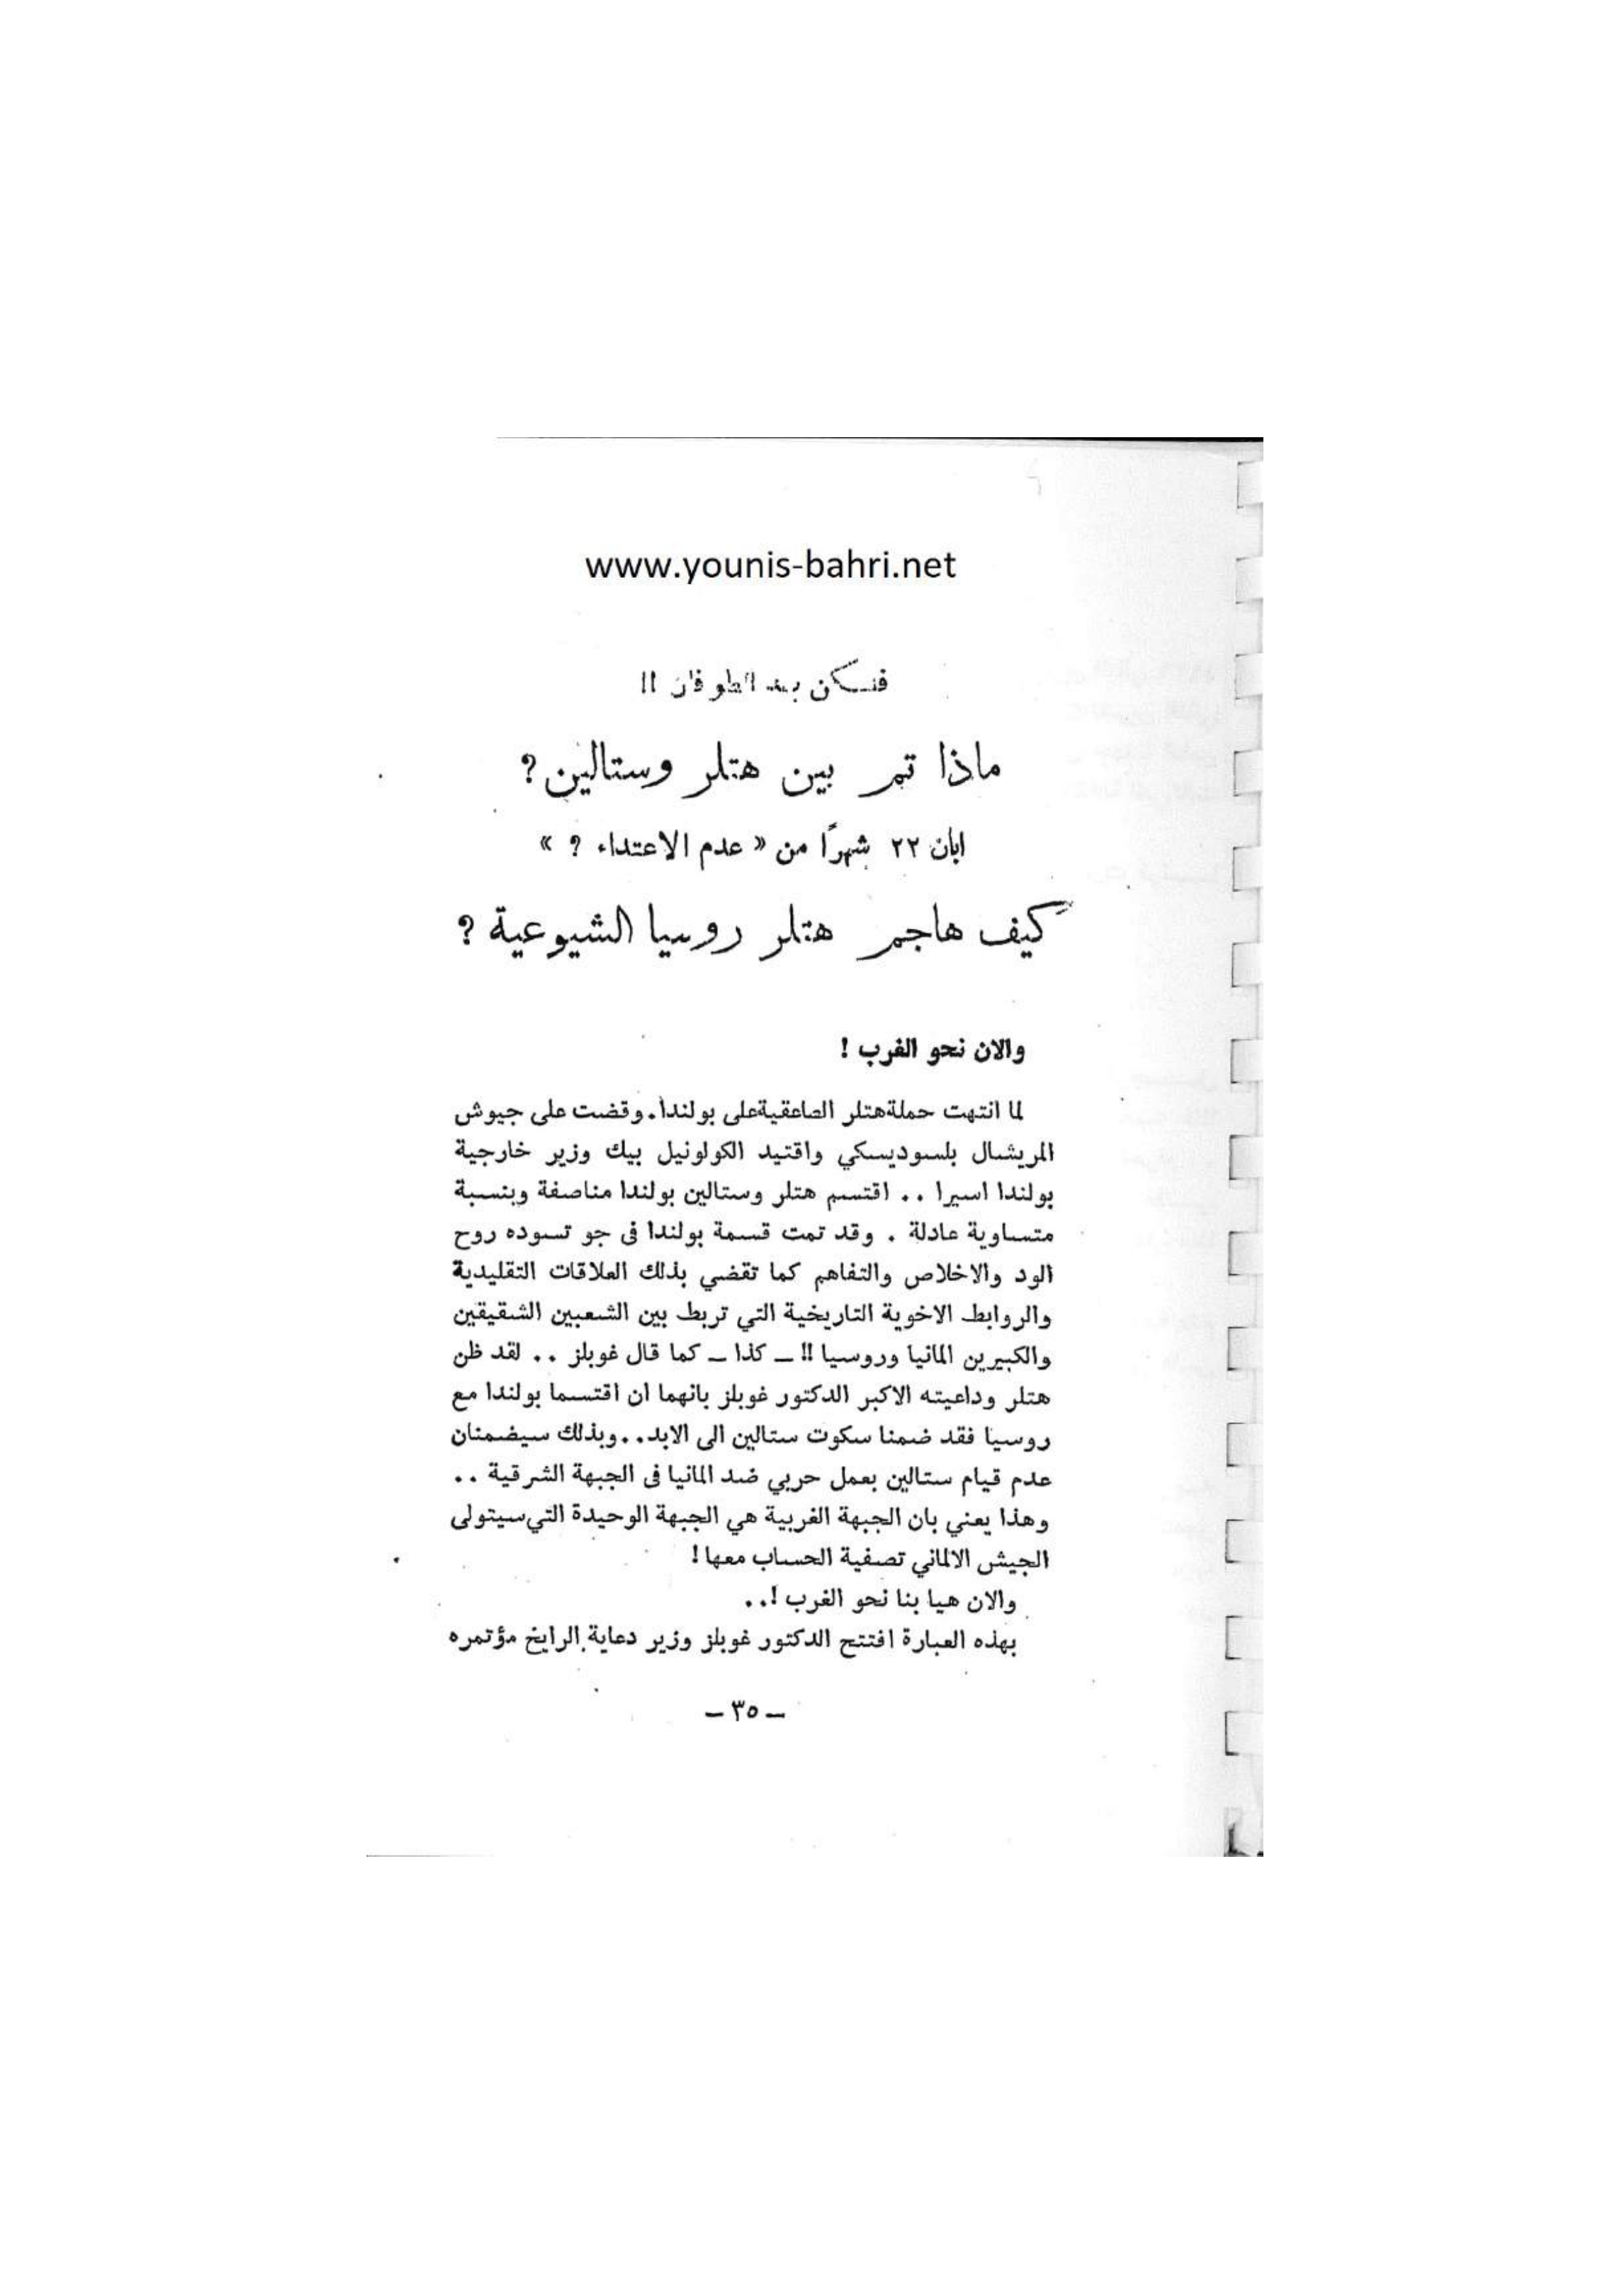 www.younis-bahri.net
فلتكن بعد الطوفان !!
ماذا تم بين هتلر وستالين ؟
ابان ٢٢ شهرًا من « عدم الاعتداء ؟ »
كيف هاجم هتلر روسيا الشيوعية ؟
والان نحو الغرب !
لما انتهت حملة هتلر الصاعقية على بولندا . وقضت على جيوش
المريشال بلسوديسكي واقتيد الكولونيل بيك وزير خارجية
بولندا اسيرا .. اقتسم هتلر وستالين بولندا مناصفة وبنسبة
متساوية عادلة . وقد تمت قسمة بولندا فى جو تسوده روح
الود والاخلاص والتفاهم كما تقضي بذلك العلاقات التقليدية
والروابط الاخوية التاريخية التي تربط بين الشعبين الشقيقين
والكبيرين المانيا وروسيا !! ـ كذا ـ كما قال غوبلز .. لقد ظن
هتلر وداعيته الاكبر الدكتور غوبلز بانهما ان اقتسما بولندا مع
روسيا فقد ضمنا سكوت ستالين الى الابد .. وبذلك سيضمنان
عدم قيام ستالين بعمل حربي ضد المانيا فى الجبهة الشرقية ..
وهذا يعني بان الجبهة الغربية هي الجبهة الوحيدة التي سيتولى
الجيش الالماني تصفية الحساب معها !
والان هيا بنا نحو الغرب ! ..
بهذه العبارة افتتح الدكتور غوبلز وزير دعاية الرايخ مؤتمره
ـ ٣٥ ـ